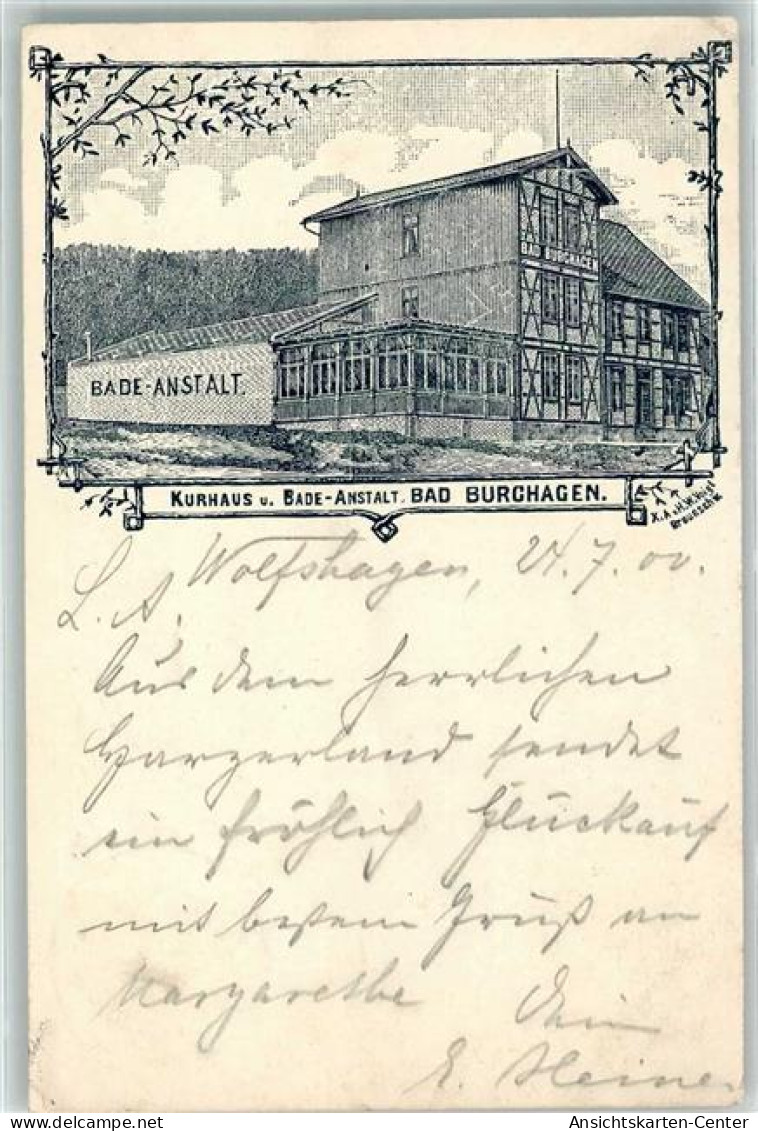 BAD BURGHAGEN
BADE-ANSTALT.
KURHAUS u. BADE-ANSTALT. BAD BURGHAGEN.
Wolfshagen, 24.7.00.
L. A.
Aus dem herrlichen
Harzerland sendet
ein fröhlich Glückauf
mit bestem Gruß an
Margarethe Dein
E. Heine.
Ansichtskarten-Center